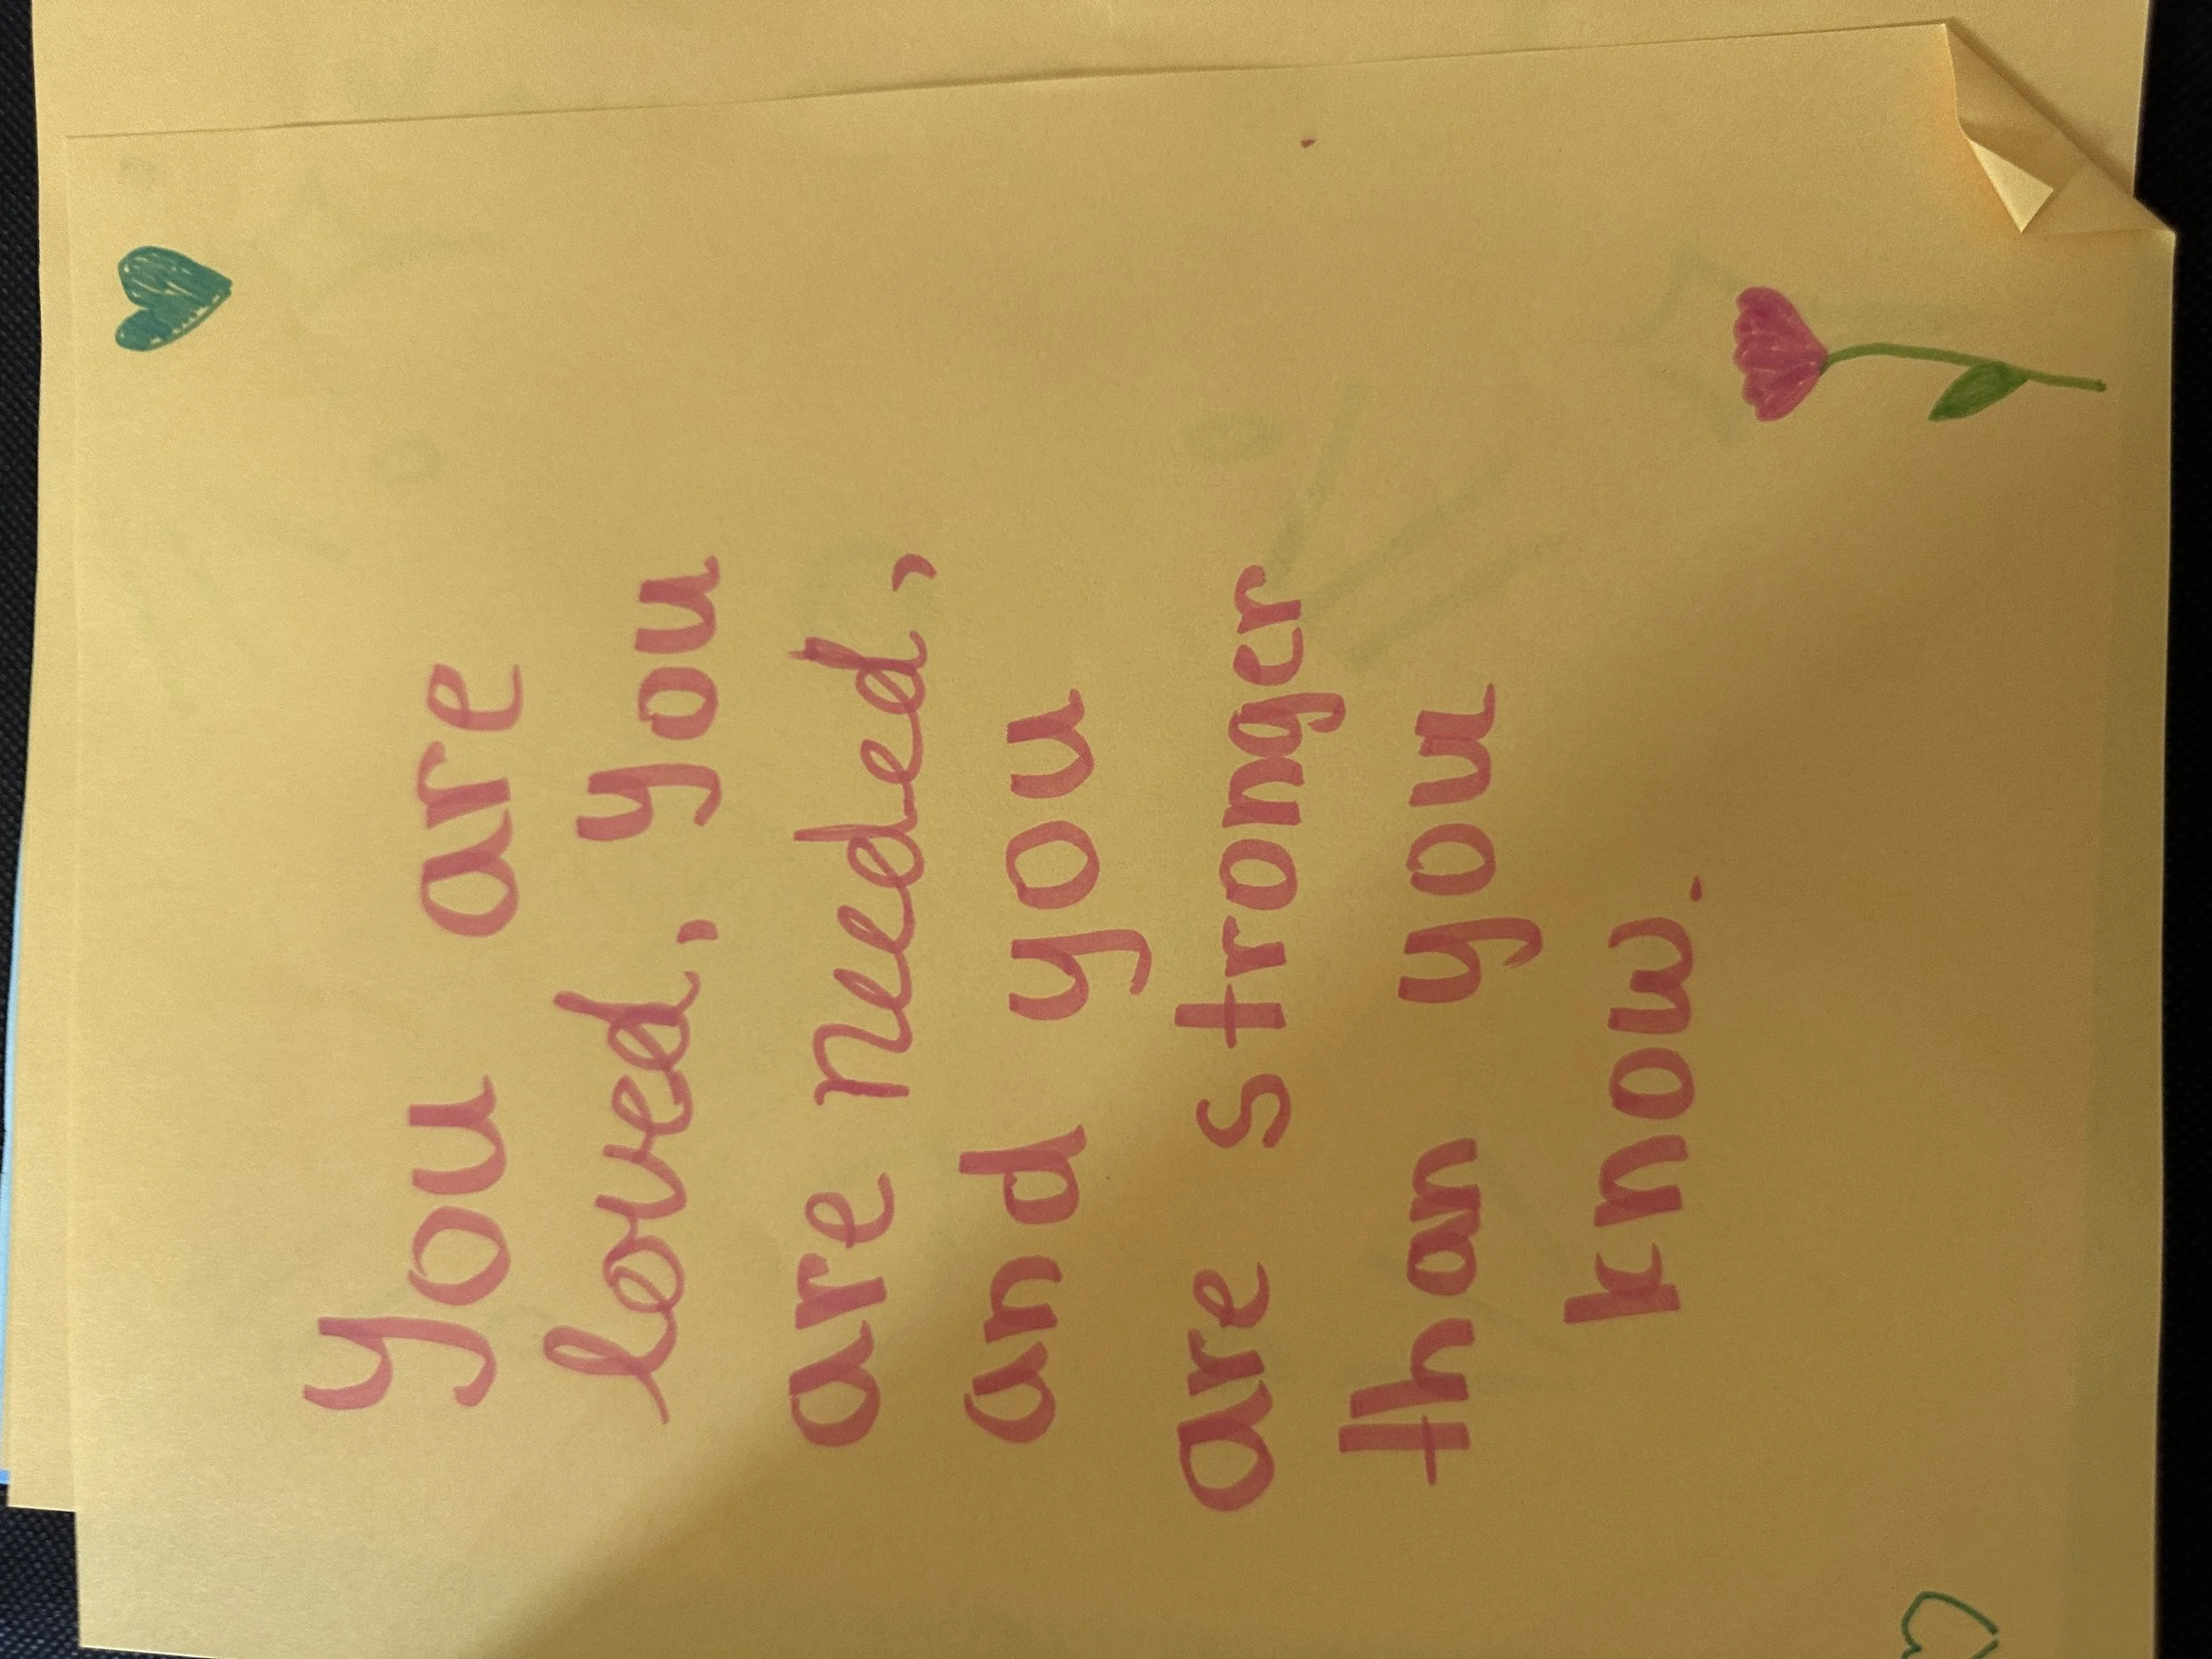 you are
loved, you
are needed,
and you
are stronger
than you
know.